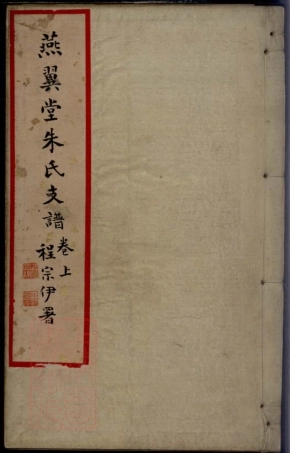 燕翼堂朱氏支譜卷上
程宗伊署